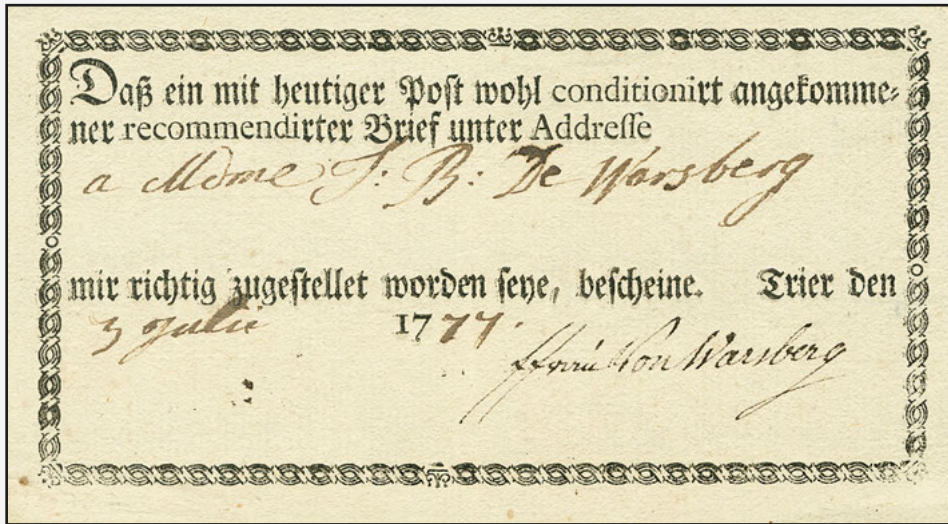 Daß ein mit heutiger Post wohl conditionirt angekomme-
ner recommendirter Brief unter Addresse
a Mdme F: B: De Warsberg
mir richtig zugestellet worden seye, bescheine. Trier den
3 Julie 1777.
ffrau Von Warsberg